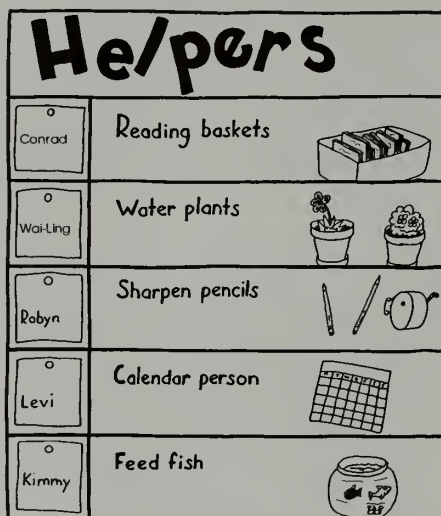 Helpers
Conrad
Reading baskets
Wai-Ling
Water plants
Robyn
Sharpen pencils
Levi
Calendar person
Kimmy
Feed fish